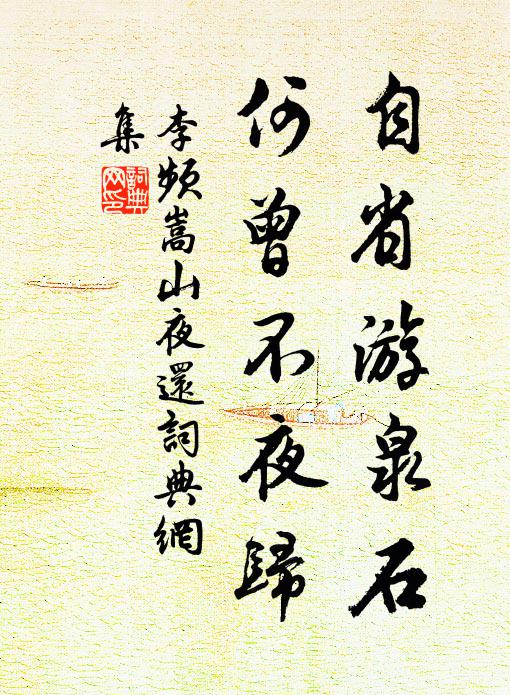 自省游泉石
何曾不夜歸
李頻嵩山夜還詞典網
集
詞典网印